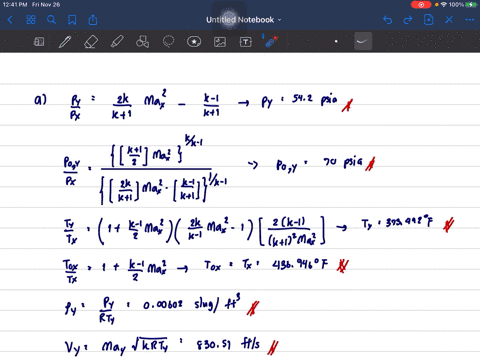 12:41 PM Fri Nov 26
100%
Untitled Notebook
a) Py/Px = 2k/k+1 Max² - k-1/k+1 → Py = 54.2 psia
Po,y/Px = {[k+1/2] Max²}^k/k-1 / {[2k/k+1] Max² - [k-1/k+1]}^1/k-1 → Po,y = 70 psia
Ty/Tx = (1 + k-1/2 Max²)(2k/k-1 Max² - 1)[2(k-1)/(k+1)² Max²] → Ty = °F
Tox/Tx = 1 + k-1/2 Max² → Tox = Tx = 436.946°F
ρy = Py/RTy = 0.00602 slug/ft³
Vy = May √kRTy = 830.57 ft/s